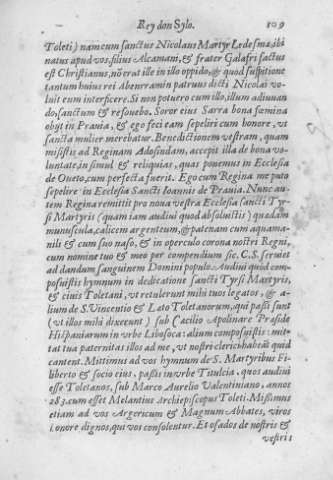 Rey don Sylo. 109
Toleti) nam cum sanctus Nicolaus Martyr Ledesmæ, ibi
natus apud vos, filius Alcamani, & frater Galafri factus
est Christianus, nō erat ille in illo oppido, & quod suspitione
tantum huius rei Abenramin patruus dicti Nicolai vo-
luit eum interficere. Si non potuero cum illo, illum adiuuan
do, sanctum & resouebo. Soror eius Sarra bona fœmina
obijt in Prauia, & ego feci eam sepeliri cum honore, vt
sancta mulier merebatur. Benedictionem vestram, quam
misistis ad Reginam Adosindam, accepit illa de bona vo-
luntate, in simul & reliquias, quas ponemus in Ecclesia
de Oueto, cum perfecta fuerit. Ego cum Regina me puto
sepelire in Ecclesia Sancti Ioannis de Prauia. Nunc au-
tem Regina remittit pro noua vestra Ecclesia sancti Tyr-
si Martyris (quam iam audiui quod absoluistis) quædam
munuscula, calicem argenteum, & patenam cum aquama-
nili & cum suo naso, & in operculo corona nostri Regni,
cum nomine tuo & meo per compendium sic. C. S. seruiet
ad dandum sanguinem Domini populo. Audiui quòd com-
posuistis hymnum in dedicatione sancti Tyrsi Martyris,
& ciuis Toletani, vt retulerunt mihi tuos legatos, & a-
lium de S. Vincentio & Leto Toletanorum, qui passi sunt
(vt illos mihi dixerunt) sub Cæcilio Apolinare Præside
Hispaniarum in vrbe Libisoca: alium composuistis: mit-
tat tua paternitas illos ad me, vt nostri clerici habeāt quid
cantent. Mittimus ad vos hymnum de S. Martyribus Fi-
liberto & socio eius, passis in vrbe Titulcia, quos audiui
esse Toletanos, sub Marco Aurelio Valentiniano, annos
283. cum esset Melantius Archiepiscopus Toleti. Misimus
etiam ad vos Argericum & Magnum Abbates, viros
honore dignos, qui vos consolentur. Et osados de nostris &
vestri s